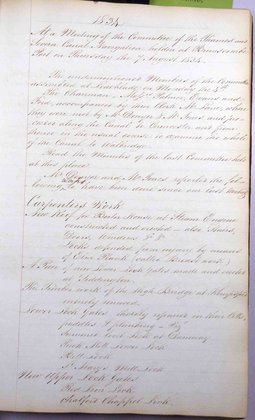 1834.
At a Meeting of the Committee of the Thames and
Severn Canal Navigation holden at Brimscomb
Port on Thursday the 7 August 1834.
The undermentioned Members of the Committee
assembled at Lechlade on Monday the 4th
The Chairman, Messrs Evans and
accompanied by their Clerk Mr Lane, where
they were met by Mr Denyer & Mr Jones and pro-
ceeded along the Canal to Cirencester and from
thence in the usual course to examine the whole
of the Canal to Walbridge.
Read the Minutes of the last Committee held
at this place.
Mr Denyer and Mr Jones reported the fol-
lowing Works have been done since our last Meeting
Carpenters Work
New Roof for Boiler House at Steam Engine
constructed and erected – also Stairs,
Doors, Windows &c &c
Locks defended from injury by means
of Elm Plank (called
A Pair of new Lower Lock Gates made and erected
at
The Timber work of the High Bridge at Kempsford
entirely renewed.
Lower Lock Gates thoroughly repaired in their Cills,
paddles & planking – Viz
Lock at Daneway
Rock Mill Lower Lock
Bell Lock
St Mary's Mill Lock
New Upper Lock Gates
Red Lion Lock
Chalford Chappel Lock.